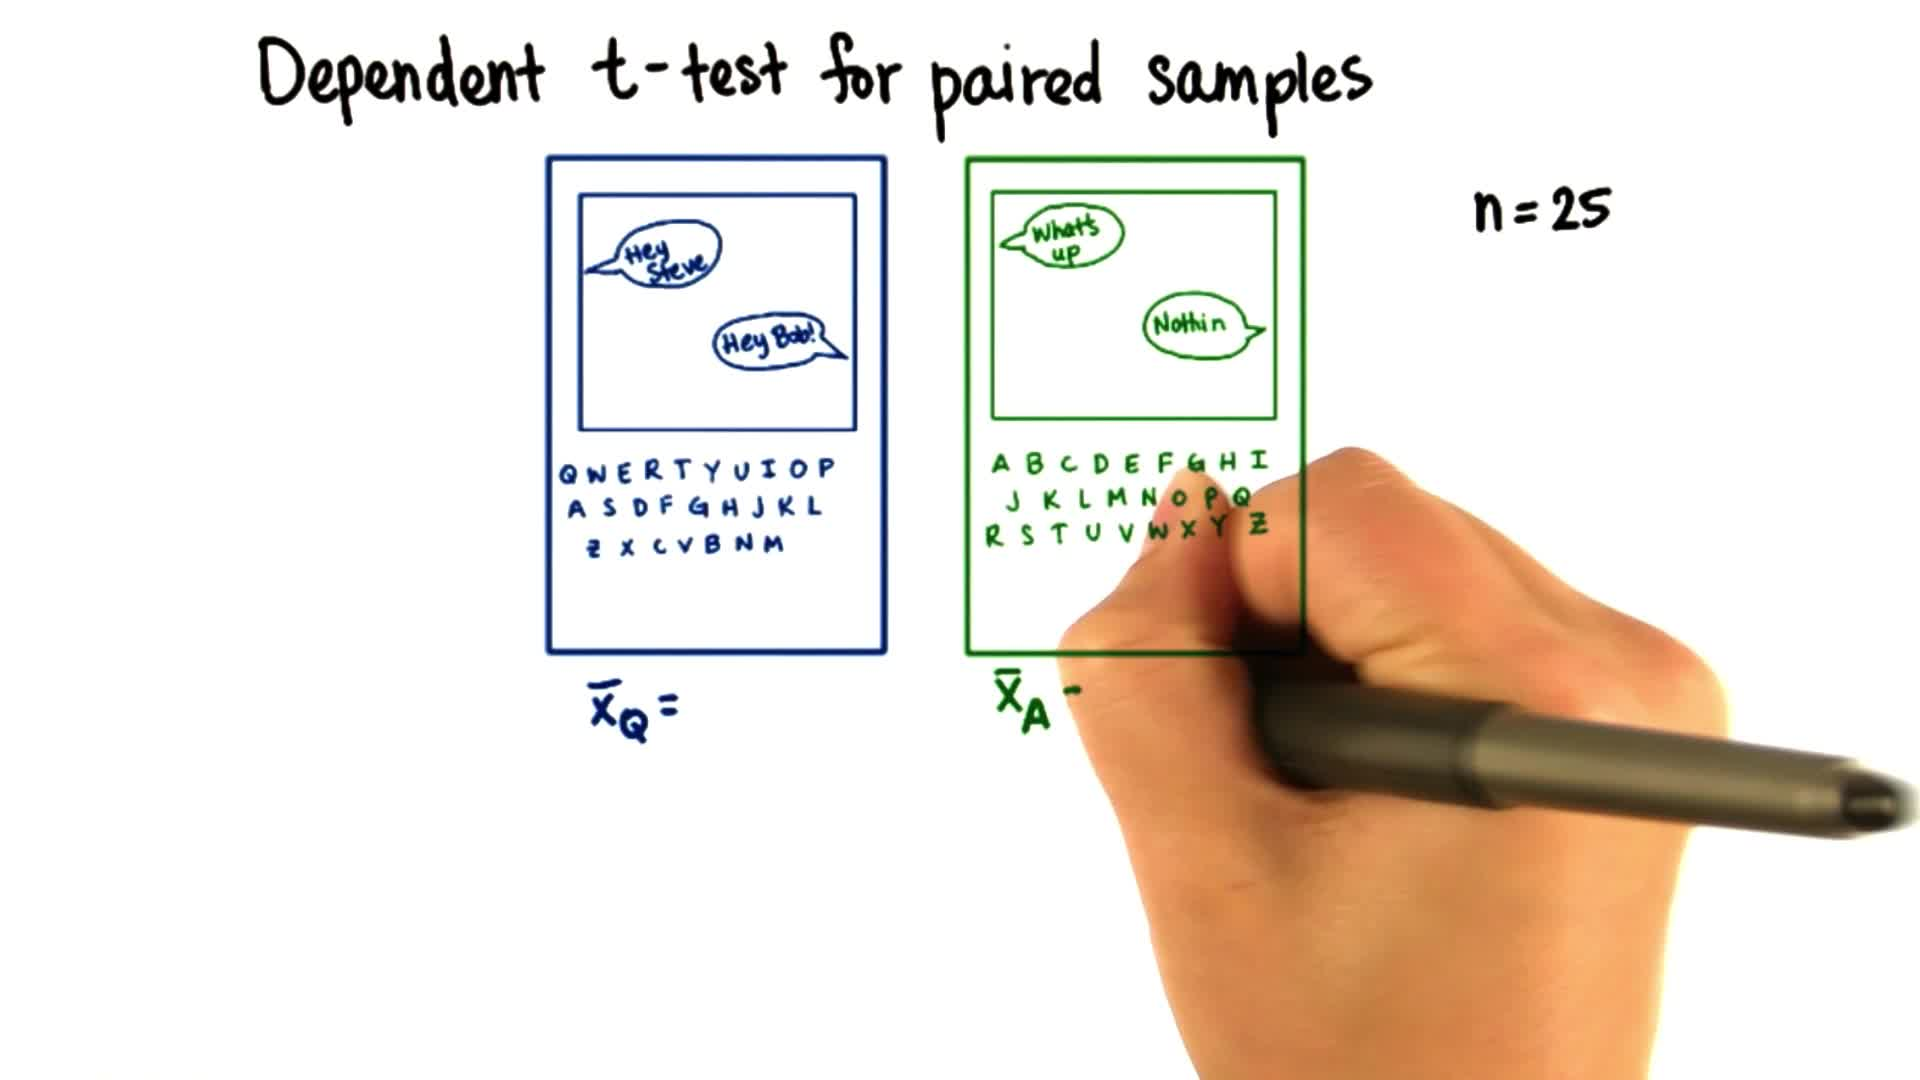 Dependent t-test for paired samples
n = 25
Hey
Steve
Hey Bob!
Q W E R T Y U I O P
A S D F G H J K L
Z X C V B N M
x̄Q =
What's
up
Nothin
A B C D E F G H I
J K L M N O P Q
R S T U V W X Y Z
x̄A -